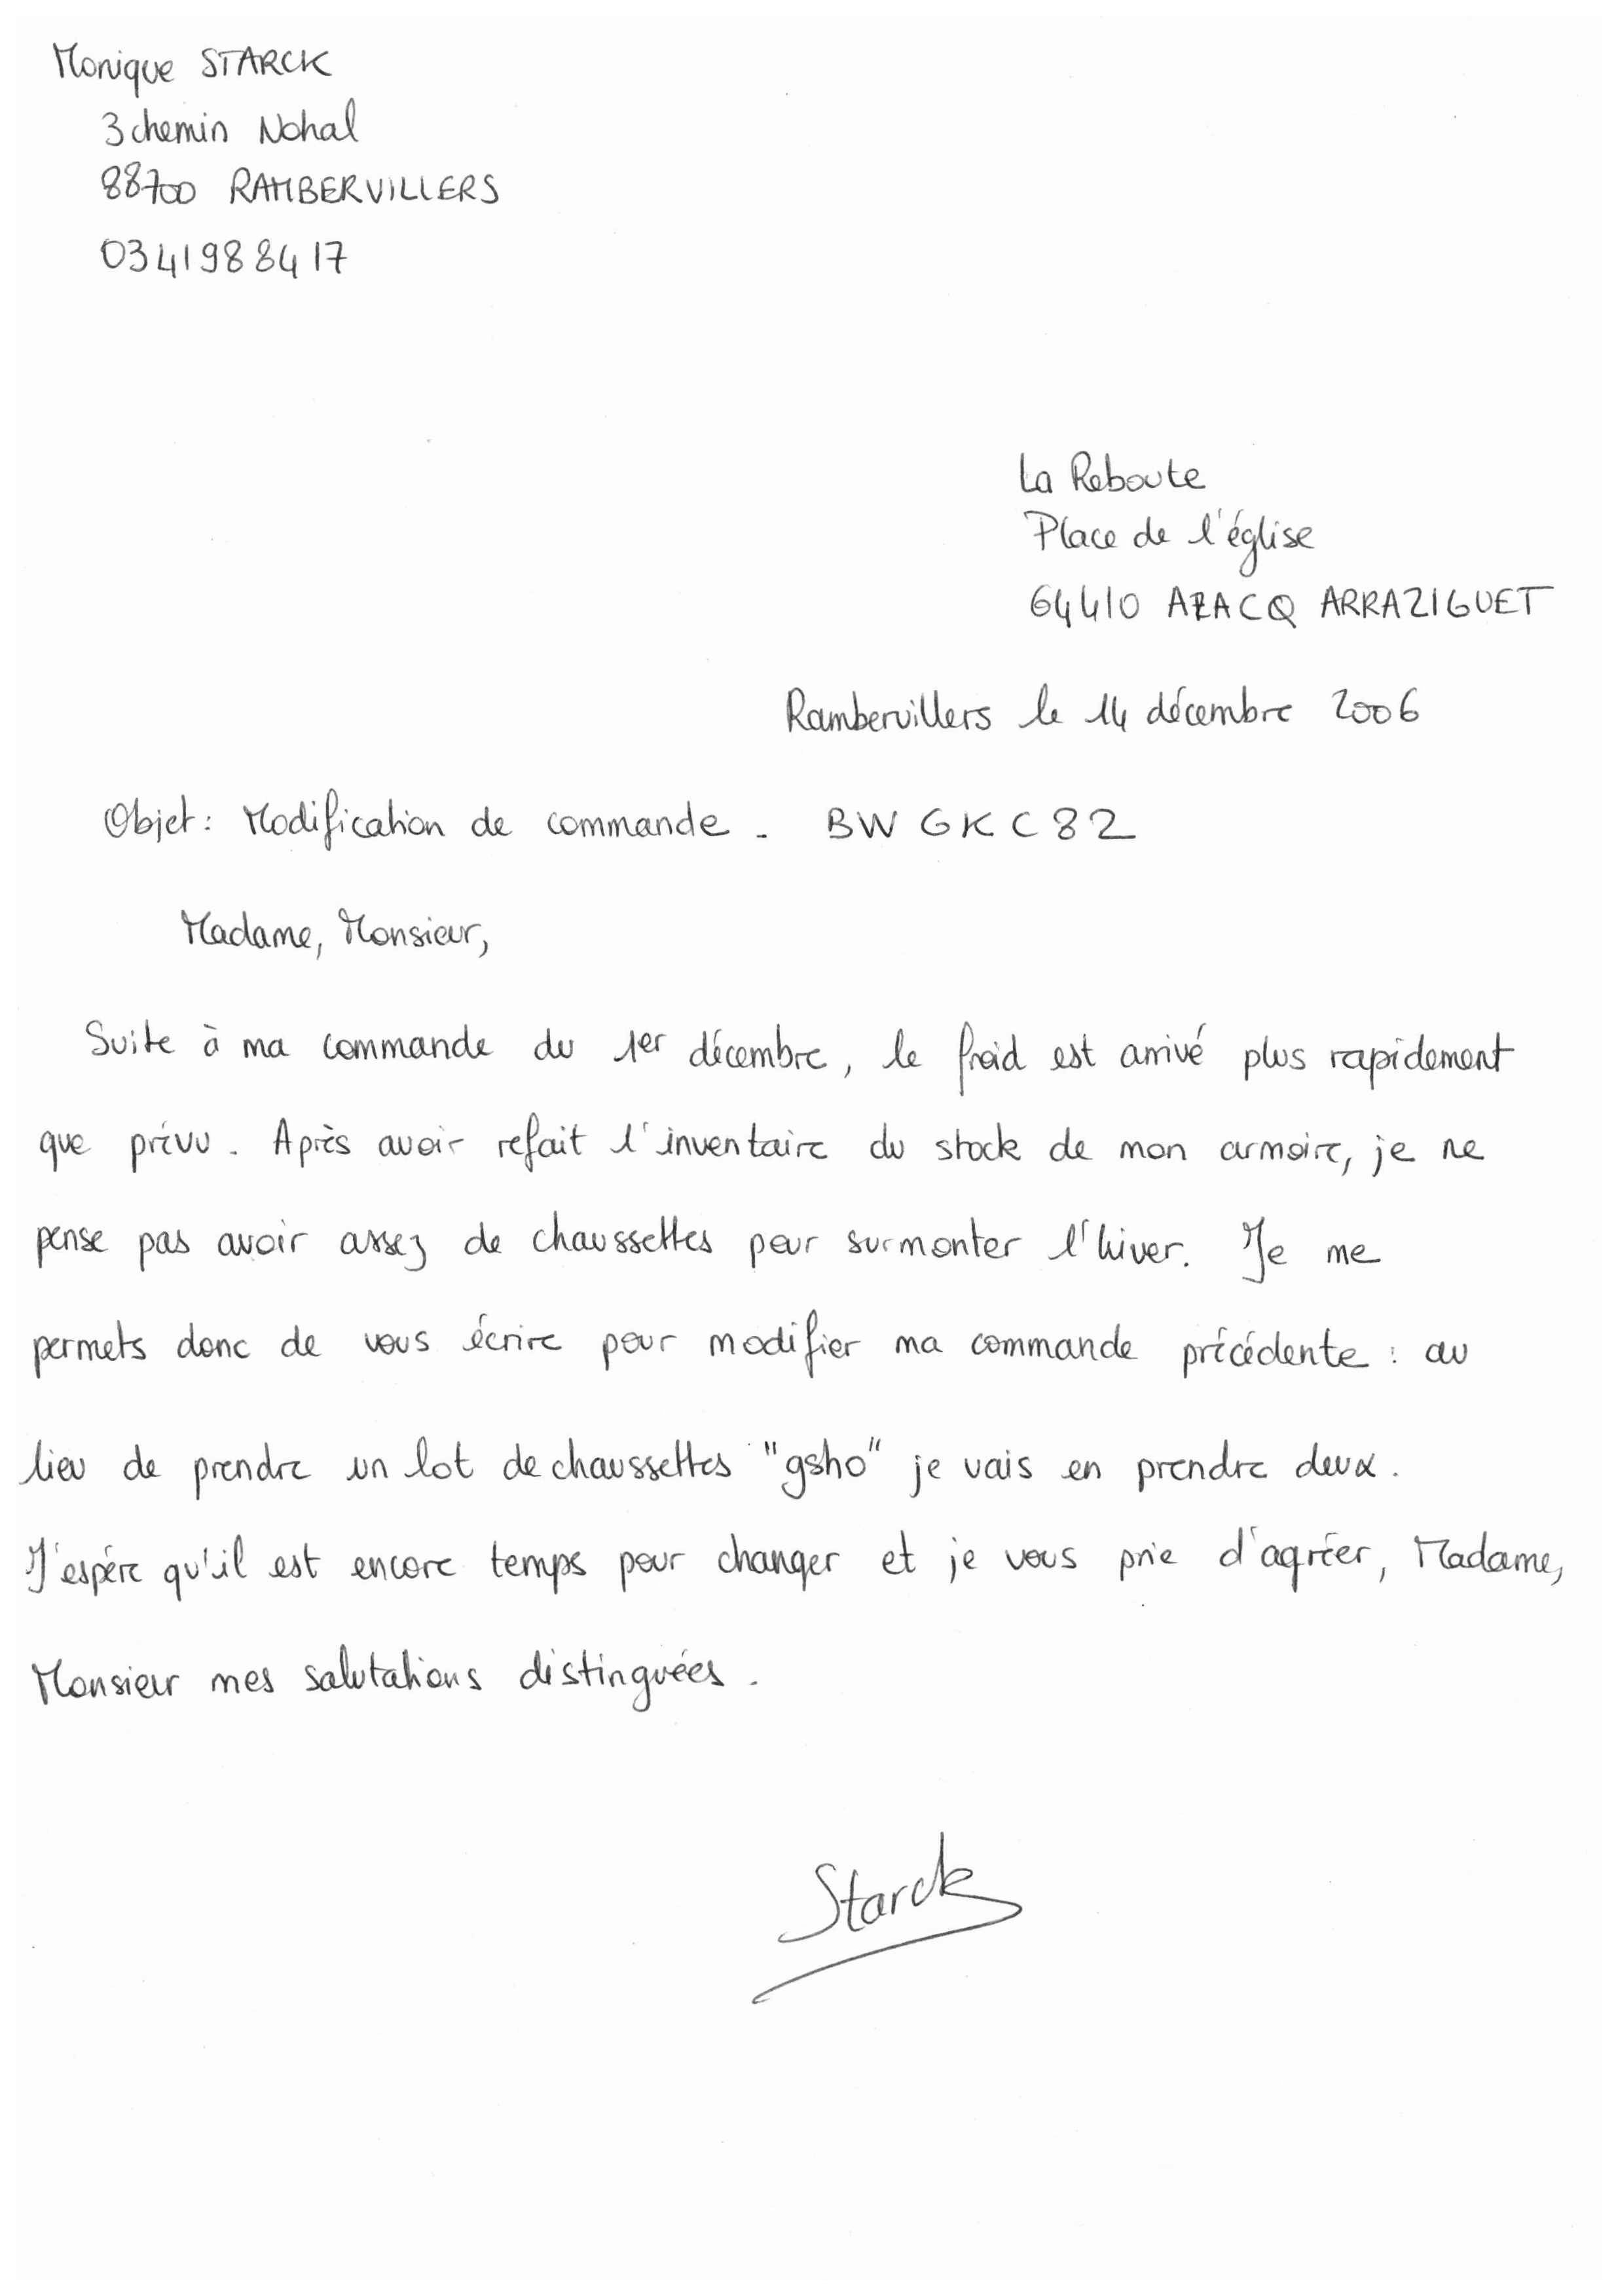 Monique STARCK
3 chemin Nohal
88700 RAMBERVILLERS
0341988417
La Reboute
Place de l'église
64410 AZACQ ARRAZIGUET
Rambervillers le 14 décembre 2006
Objet : Modification de commande - BWGKC82
Madame, Monsieur,
Suite à ma commande du 1er décembre, le froid est arrivé plus rapidement
que prévu. Après avoir refait l'inventaire du stock de mon armoire, je ne
pense pas avoir assez de chaussettes pour surmonter l'hiver. Je me
permets donc de vous écrire pour modifier ma commande précédente : au
lieu de prendre un lot de chaussettes "gsho" je vais en prendre deux.
J'espére qu'il est encore temps pour changer et je vous prie d'agréer, Madame,
Monsieur mes salutations distinguées.
Starck